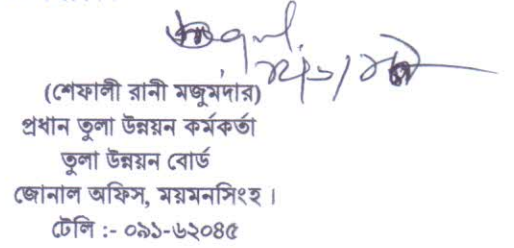 (শেফালী রানী মজুমদার)
প্রধান তুলা উন্নয়ন কর্মকর্তা
তুলা উন্নয়ন বোর্ড
জোনাল অফিস, ময়মনসিংহ ।
টেলি :- ০৯১-৬২০৪৫